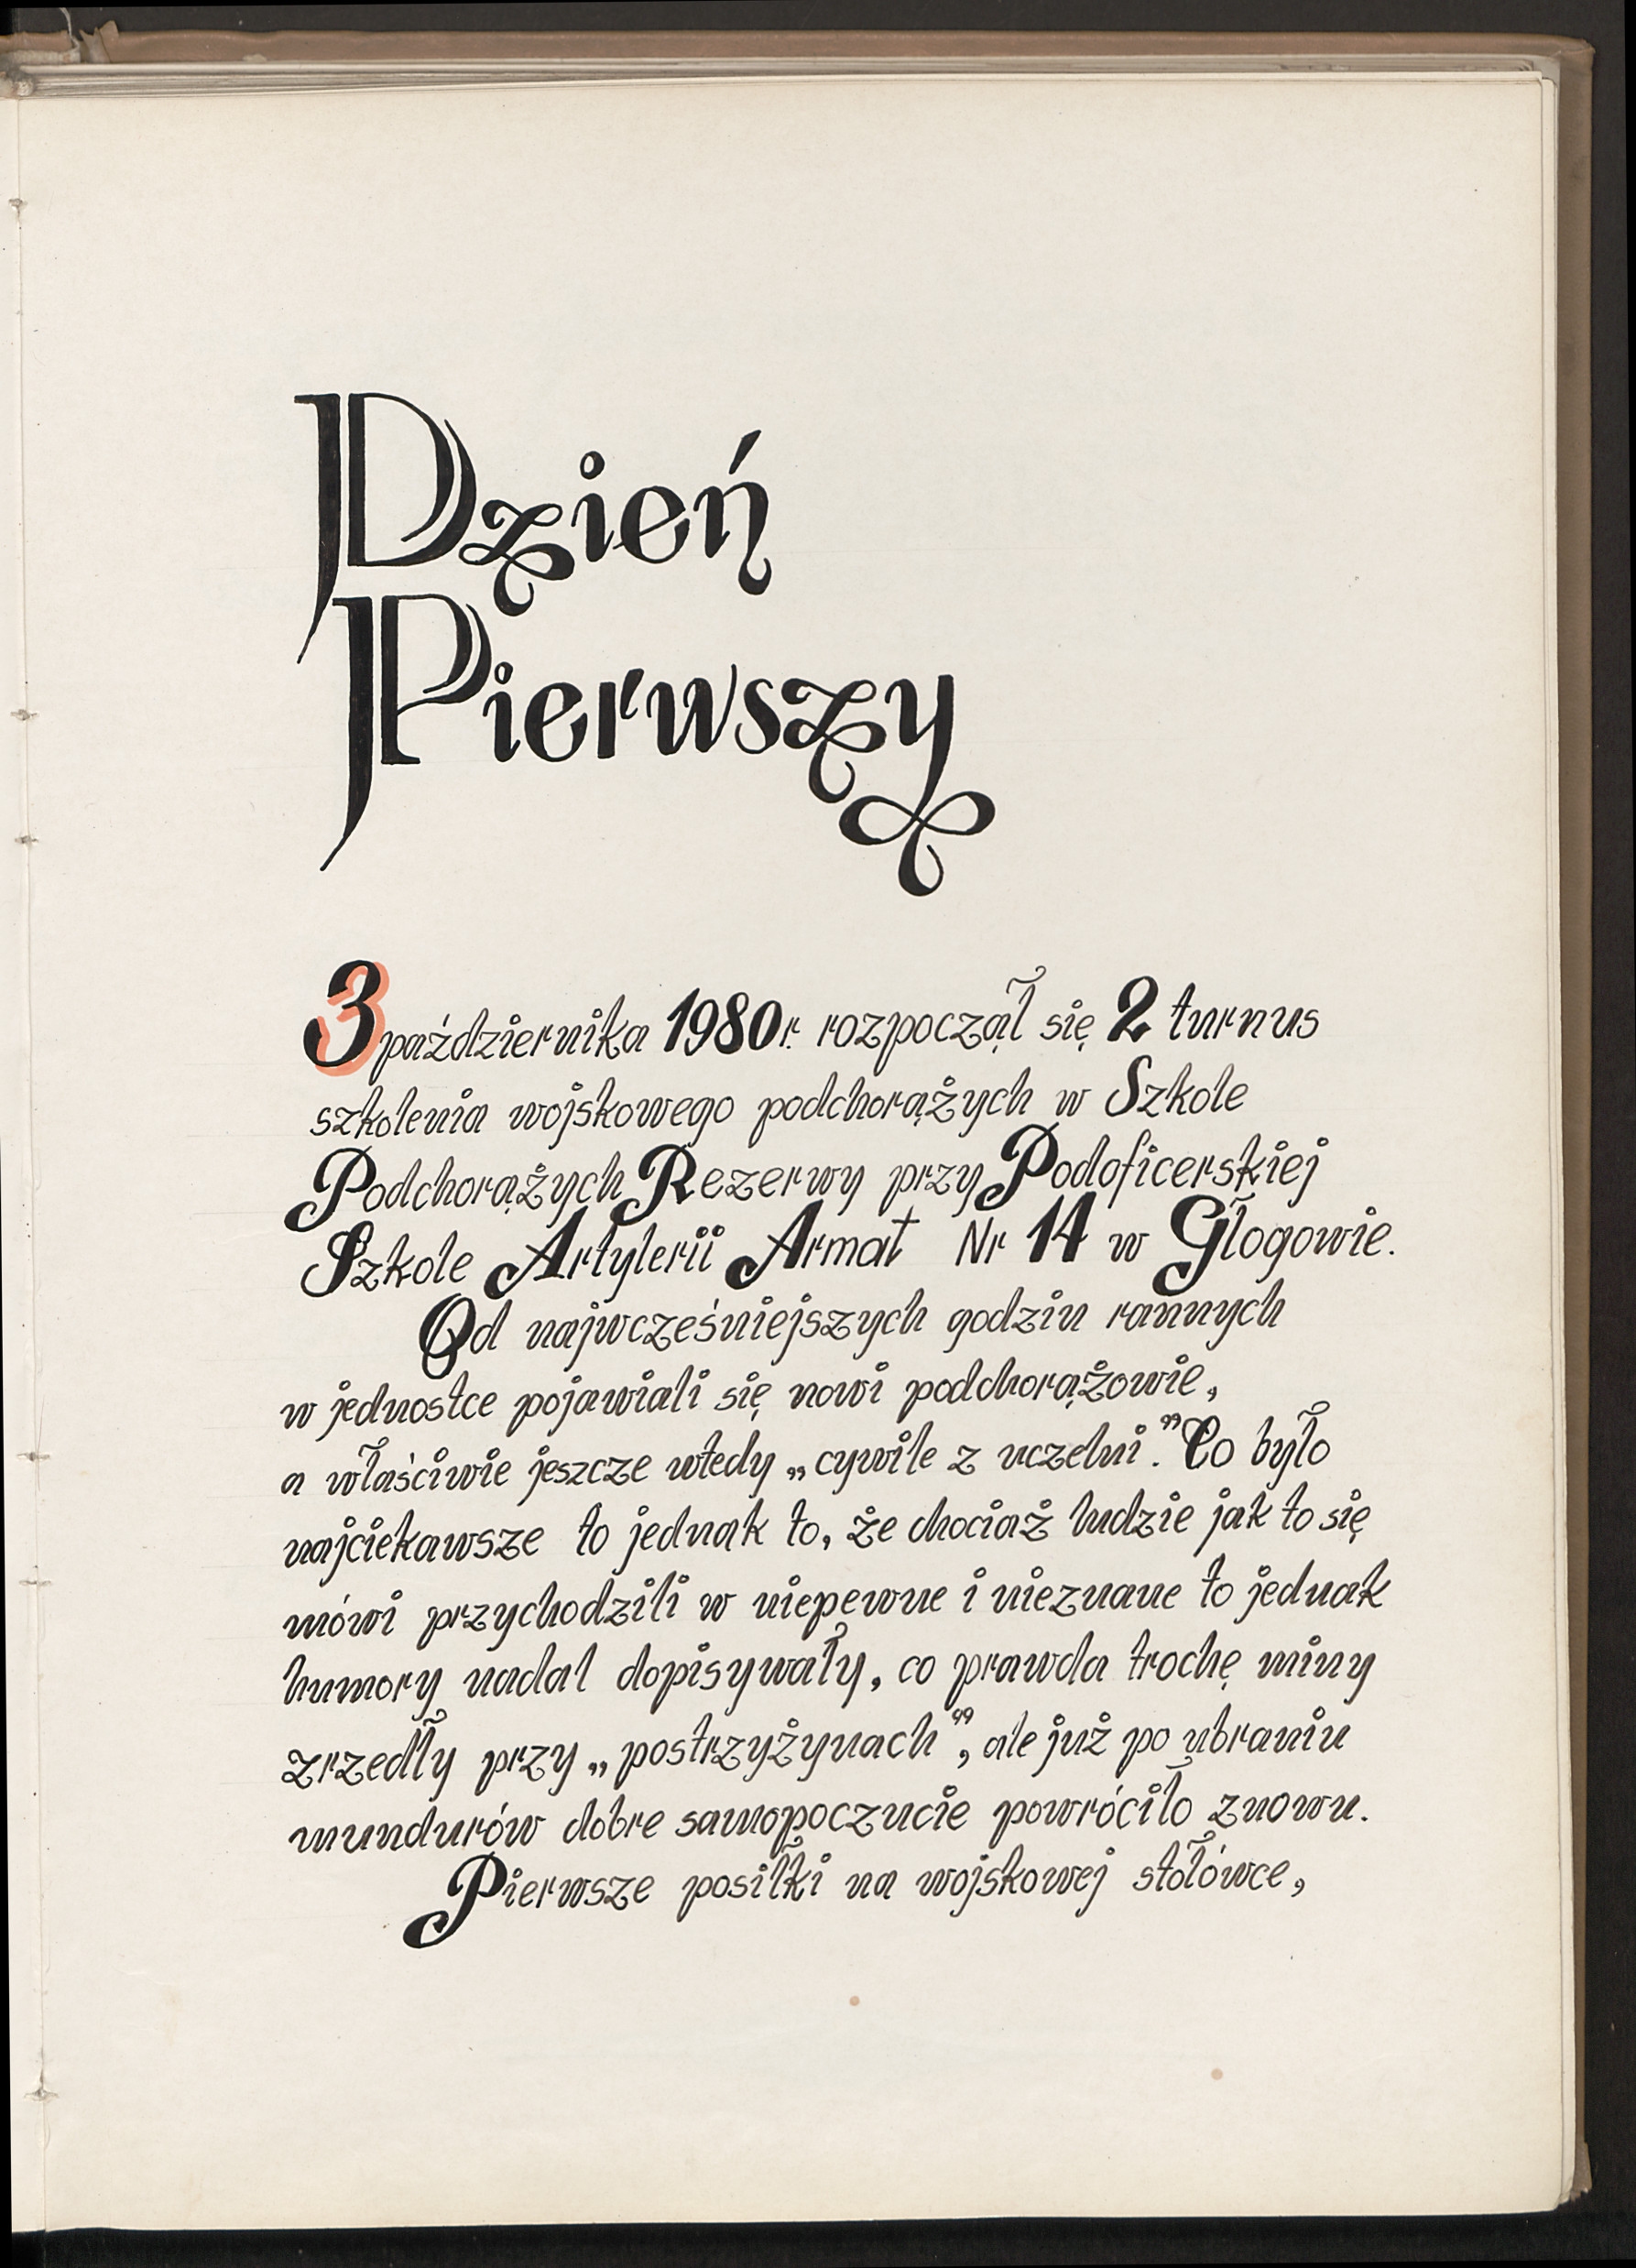 Dzień
Pierwszy
3 października 1980r. rozpoczął się 2 turnus
szkolenia wojskowego podchorążych w Szkole
Podchorążych Rezerwy przy Podoficerskiej
Szkole Artylerii Armat Nr 14 w Głogowie.
Od najwcześniejszych godzin rannych
w jednostce pojawiali się nowi podchorążowie,
a właściwie jeszcze wtedy „cywile z uczelni.” Co było
najciekawsze to jednak to, że chociaż ludzie jak to się
mówi przychodzili w niepewne i nieznane to jednak
humory nadal dopisywały, co prawda trochę miny
zrzedły przy „postrzyżynach”, ale już po ubraniu
mundurów dobre samopoczucie powróciło znowu.
Pierwsze posiłki na wojskowej stółówce,